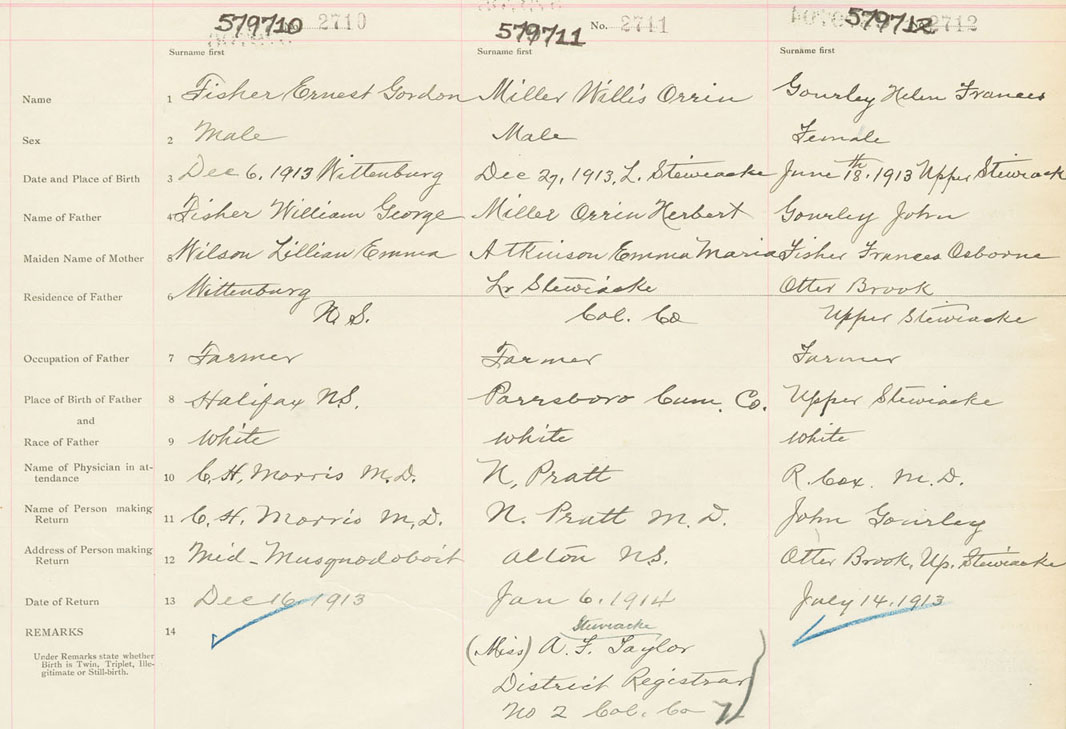 579710 No. 2710 579711 No. 2711 579712 2712
Surname first Surname first Surname first
Name 1 Fisher Ernest Gordon Miller Willis Orrin Gourley Helen Frances
Sex 2 Male Male Female
Date and Place of Birth 3 Dec 6, 1913 Wittenburg Dec 27, 1913, L. Stewiacke June 18th, 1913 Upper Stewiack
Name of Father 4 Fisher William George Miller Orrin Herbert Gourley John
Maiden Name of Mother 5 Wilson Lillian Emma Atkinson Emma Maria Fisher Frances Osborne
Residence of Father 6 Wittenburg Lr Stewiacke Otter Brook
N.S. Col. Co Upper Stewiacke
Occupation of Father 7 Farmer Farmer Farmer
Place of Birth of Father 8 Halifax N.S. Parrsboro Cum. Co. Upper Stewiacke
and
Race of Father 9 White White White
Name of Physician in at-
tendance 10 C. H. Morris M.D. N. Pratt R. Cox. M.D.
Name of Person making
Return 11 C. H. Morris M.D. N. Pratt M.D. John Gourley
Address of Person making
Return 12 Mid-Musquodoboit Alton N.S. Otter Brook, Up. Stewiacke
Date of Return 13 Dec 16, 1913 Jan 6, 1914 July 14, 1913
REMARKS 14 Stewiacke
(Miss) A. F. Taylor
Under Remarks state whether
Birth is Twin, Triplet, Ille-
gitimate or Still-birth.
District Registrar
No 2 Col. Co